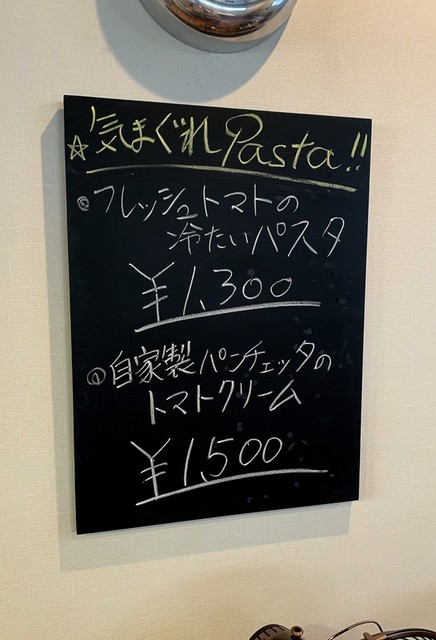 ☆気まぐれPasta!!
◎フレッシュトマトの
冷たいパスタ
¥1,300
◎自家製パンチェッタの
トマトクリーム
¥1,500